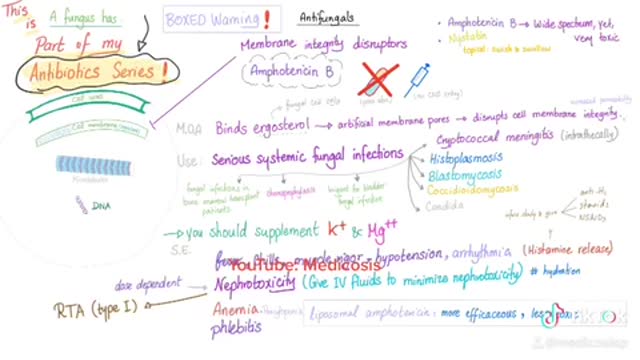 This is
A fungus has
Part of my
Antibiotics Series!
BOXED Warning!
Antifungals
Membrane integrity disruptors
Amphotericin B
Amphotericin B → Wide spectrum, yet, very toxic
Nystatin
topical: swish & swallow
Cell wall
Cell membrane
Microtubule
DNA
fungal cell
M.O.A: Binds ergosterol → artificial membrane pores → disrupts cell membrane integrity
increased permeability
Use: Serious systemic fungal infections
Cryptococcal meningitis (intrathecally)
Histoplasmosis
Blastomycosis
Coccidioidomycosis
Candida
fungal infections in bone marrow transplant patients
chemoprophylaxis
for bladder fungal infection
→ you should supplement K+ & Mg++
anti-H1
steroids
NSAIDs
S.E.
hypotension, arrhythmia (Histamine release)
YouTube: Medicosis
dose dependent
Nephrotoxicity (Give IV fluids to minimize nephrotoxicity) # hydration
RTA (type I)
Anemia
phlebitis
liposomal amphotericin: more efficaceous, less toxic
TikTok